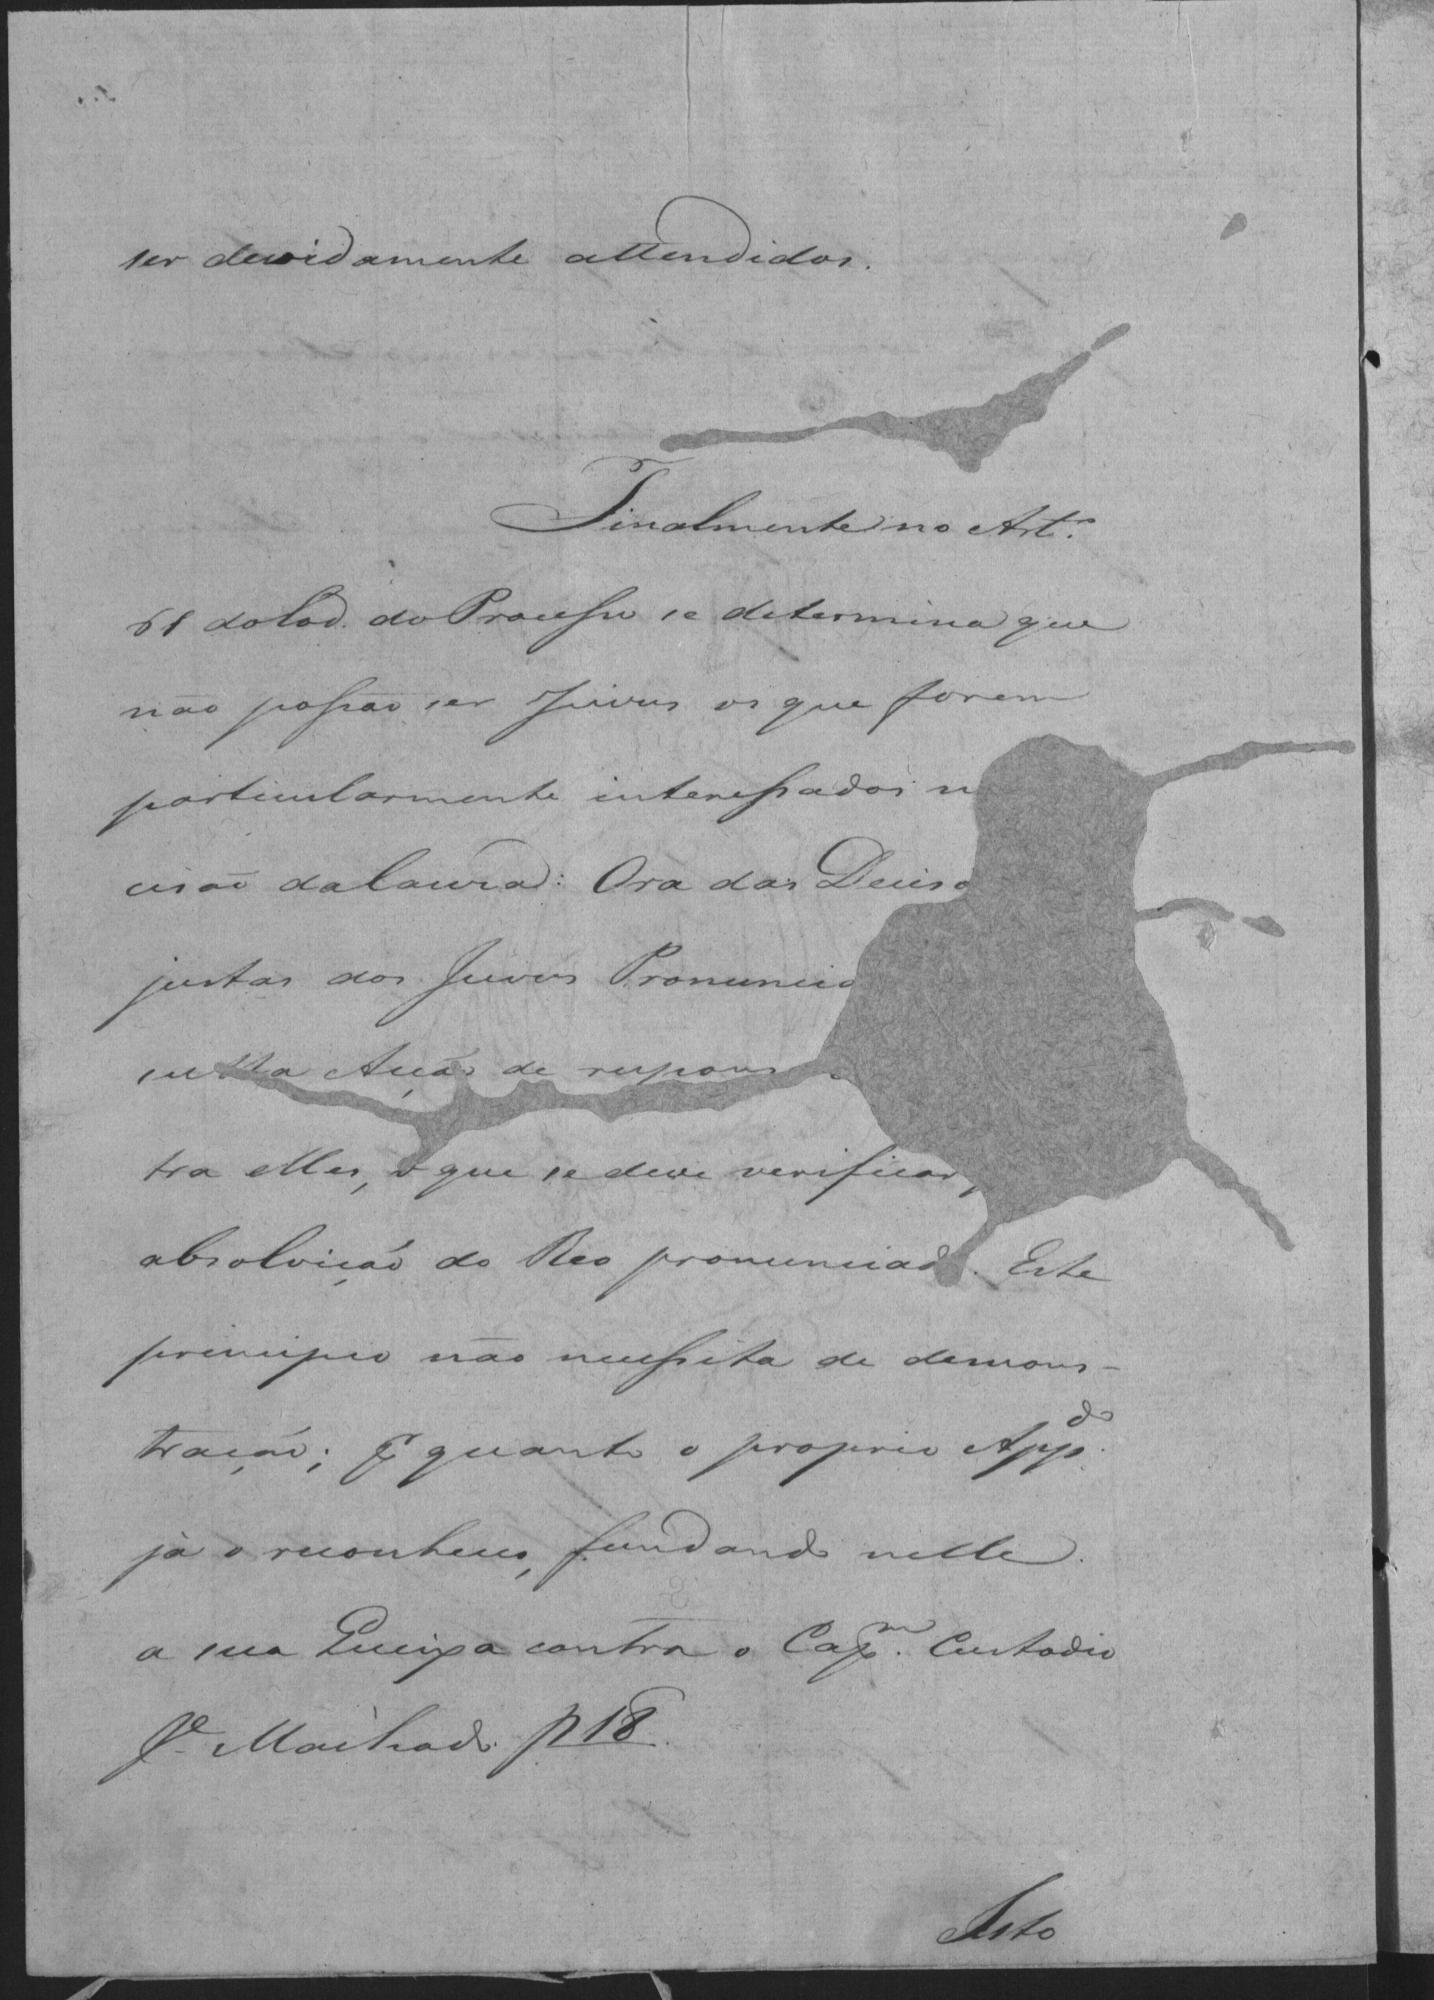 ser devidamente attendidos.
Finalmente no Art.º
61 do Cod. do Processo se determina que
não possão ser Juizes os que forem
particularmente interessados n
cisão da Causa: Ora das Deciso
justas dos Juizes Pronuncia
sulta Acção de respons
tra elles, o que se deve verificar
absolvição do Reo pronunciado. Este
principio não necessita de demons-
tração; E quanto o proprio App.do
já o reconheceo, fundando nelle
a sua Queixa contra o Cap.m Custodio
Je. Machado f 18.
Isto